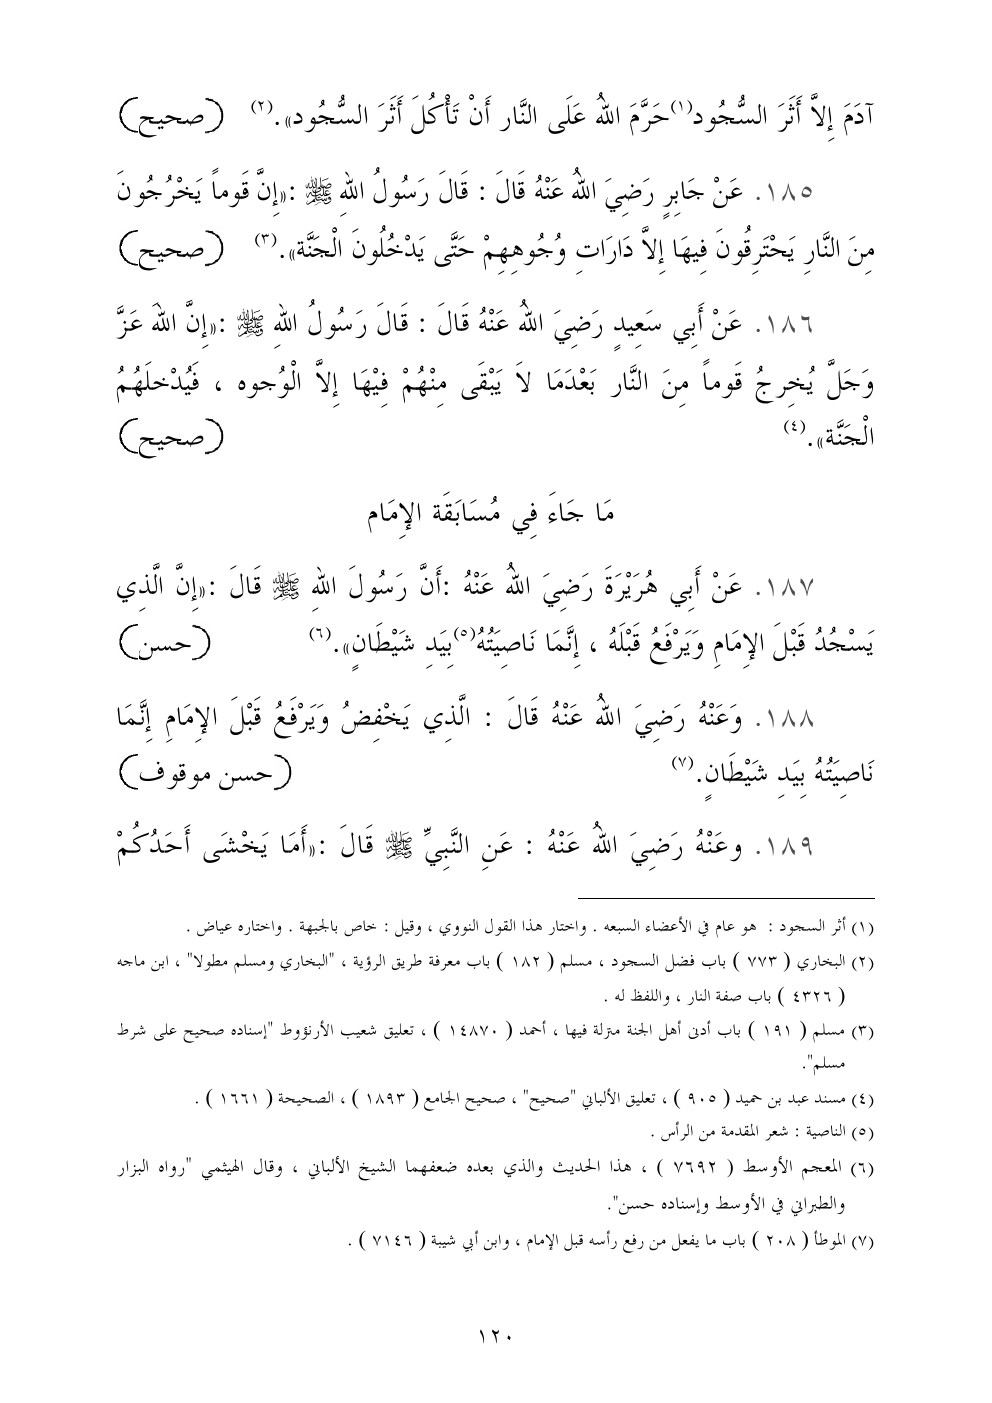 آدَمَ إِلاَّ أَثَرَ السُّجُود(١)حَرَّمَ اللهُ عَلَى النَّار أَنْ تَأْكُلَ أَثَرَ السُّجُود».(٢) (صحيح)
١٨٥. عَنْ جَابِرٍ رَضِيَ اللهُ عَنْهُ قَالَ : قَالَ رَسُولُ اللهِ ﷺ :«إِنَّ قَوماً يَخْرُجُونَ
مِنَ النَّارِ يَحْتَرِقُونَ فِيهَا إِلاَّ دَارَاتِ وُجُوهِهِمْ حَتَّى يَدْخُلُونَ الْجَنَّة».(٣) (صحيح)
١٨٦. عَنْ أَبِي سَعِيدٍ رَضِيَ اللهُ عَنْهُ قَالَ : قَالَ رَسُولُ اللهِ ﷺ :«إِنَّ اللهَ عَزَّ
وَجَلَّ يُخرِجُ قَوماً مِنَ النَّار بَعْدَمَا لاَ يَبْقَى مِنْهُمْ فِيْهَا إِلاَّ الْوُجوه ، فَيُدْخلَهُمُ
الْجَنَّة».(٤) (صحيح)
مَا جَاءَ فِي مُسَابَقَة الإِمَام
١٨٧. عَنْ أَبِي هُرَيْرَةَ رَضِيَ اللهُ عَنْهُ :أَنَّ رَسُولَ اللهِ ﷺ قَالَ :«إِنَّ الَّذِي
يَسْجُدُ قَبْلَ الإِمَامِ وَيَرْفَعُ قَبْلَهُ ، إِنَّمَا نَاصِيَتُهُ(٥)بِيَدِ شَيْطَانٍ».(٦) (حسن)
١٨٨. وَعَنْهُ رَضِيَ اللهُ عَنْهُ قَالَ : الَّذِي يَخْفِضُ وَيَرْفَعُ قَبْلَ الإِمَامِ إِنَّمَا
نَاصِيَتُهُ بِيَدِ شَيْطَانٍ.(٧) (حسن موقوف)
١٨٩. وعَنْهُ رَضِيَ اللهُ عَنْهُ : عَنِ النَّبِيِّ ﷺ قَالَ :«أَمَا يَخْشَى أَحَدُكُمْ
(١) أثر السجود : هو عام في الأعضاء السبعه . واختار هذا القول النووي ، وقيل : خاص بالجبهة . واختاره عياض .
(٢) البخاري ( ٧٧٣ ) باب فضل السجود ، مسلم ( ١٨٢ ) باب معرفة طريق الرؤية ، "البخاري ومسلم مطولا" ، ابن ماجه
( ٤٣٢٦ ) باب صفة النار ، واللفظ له .
(٣) مسلم ( ١٩١ ) باب أدنى أهل الجنة منزلة فيها ، أحمد ( ١٤٨٧٠ ) ، تعليق شعيب الأرنؤوط "إسناده صحيح على شرط
مسلم".
(٤) مسند عبد بن حميد ( ٩٠٥ ) ، تعليق الألباني "صحيح" ، صحيح الجامع ( ١٨٩٣ ) ، الصحيحة ( ١٦٦١ ) .
(٥) الناصية : شعر المقدمة من الرأس .
(٦) المعجم الأوسط ( ٧٦٩٢ ) ، هذا الحديث والذي بعده ضعفهما الشيخ الألباني ، وقال الهيثمي "رواه البزار
والطبراني في الأوسط وإسناده حسن".
(٧) الموطأ ( ٢٠٨ ) باب ما يفعل من رفع رأسه قبل الإمام ، وابن أبي شيبة ( ٧١٤٦ ) .
١٢٠